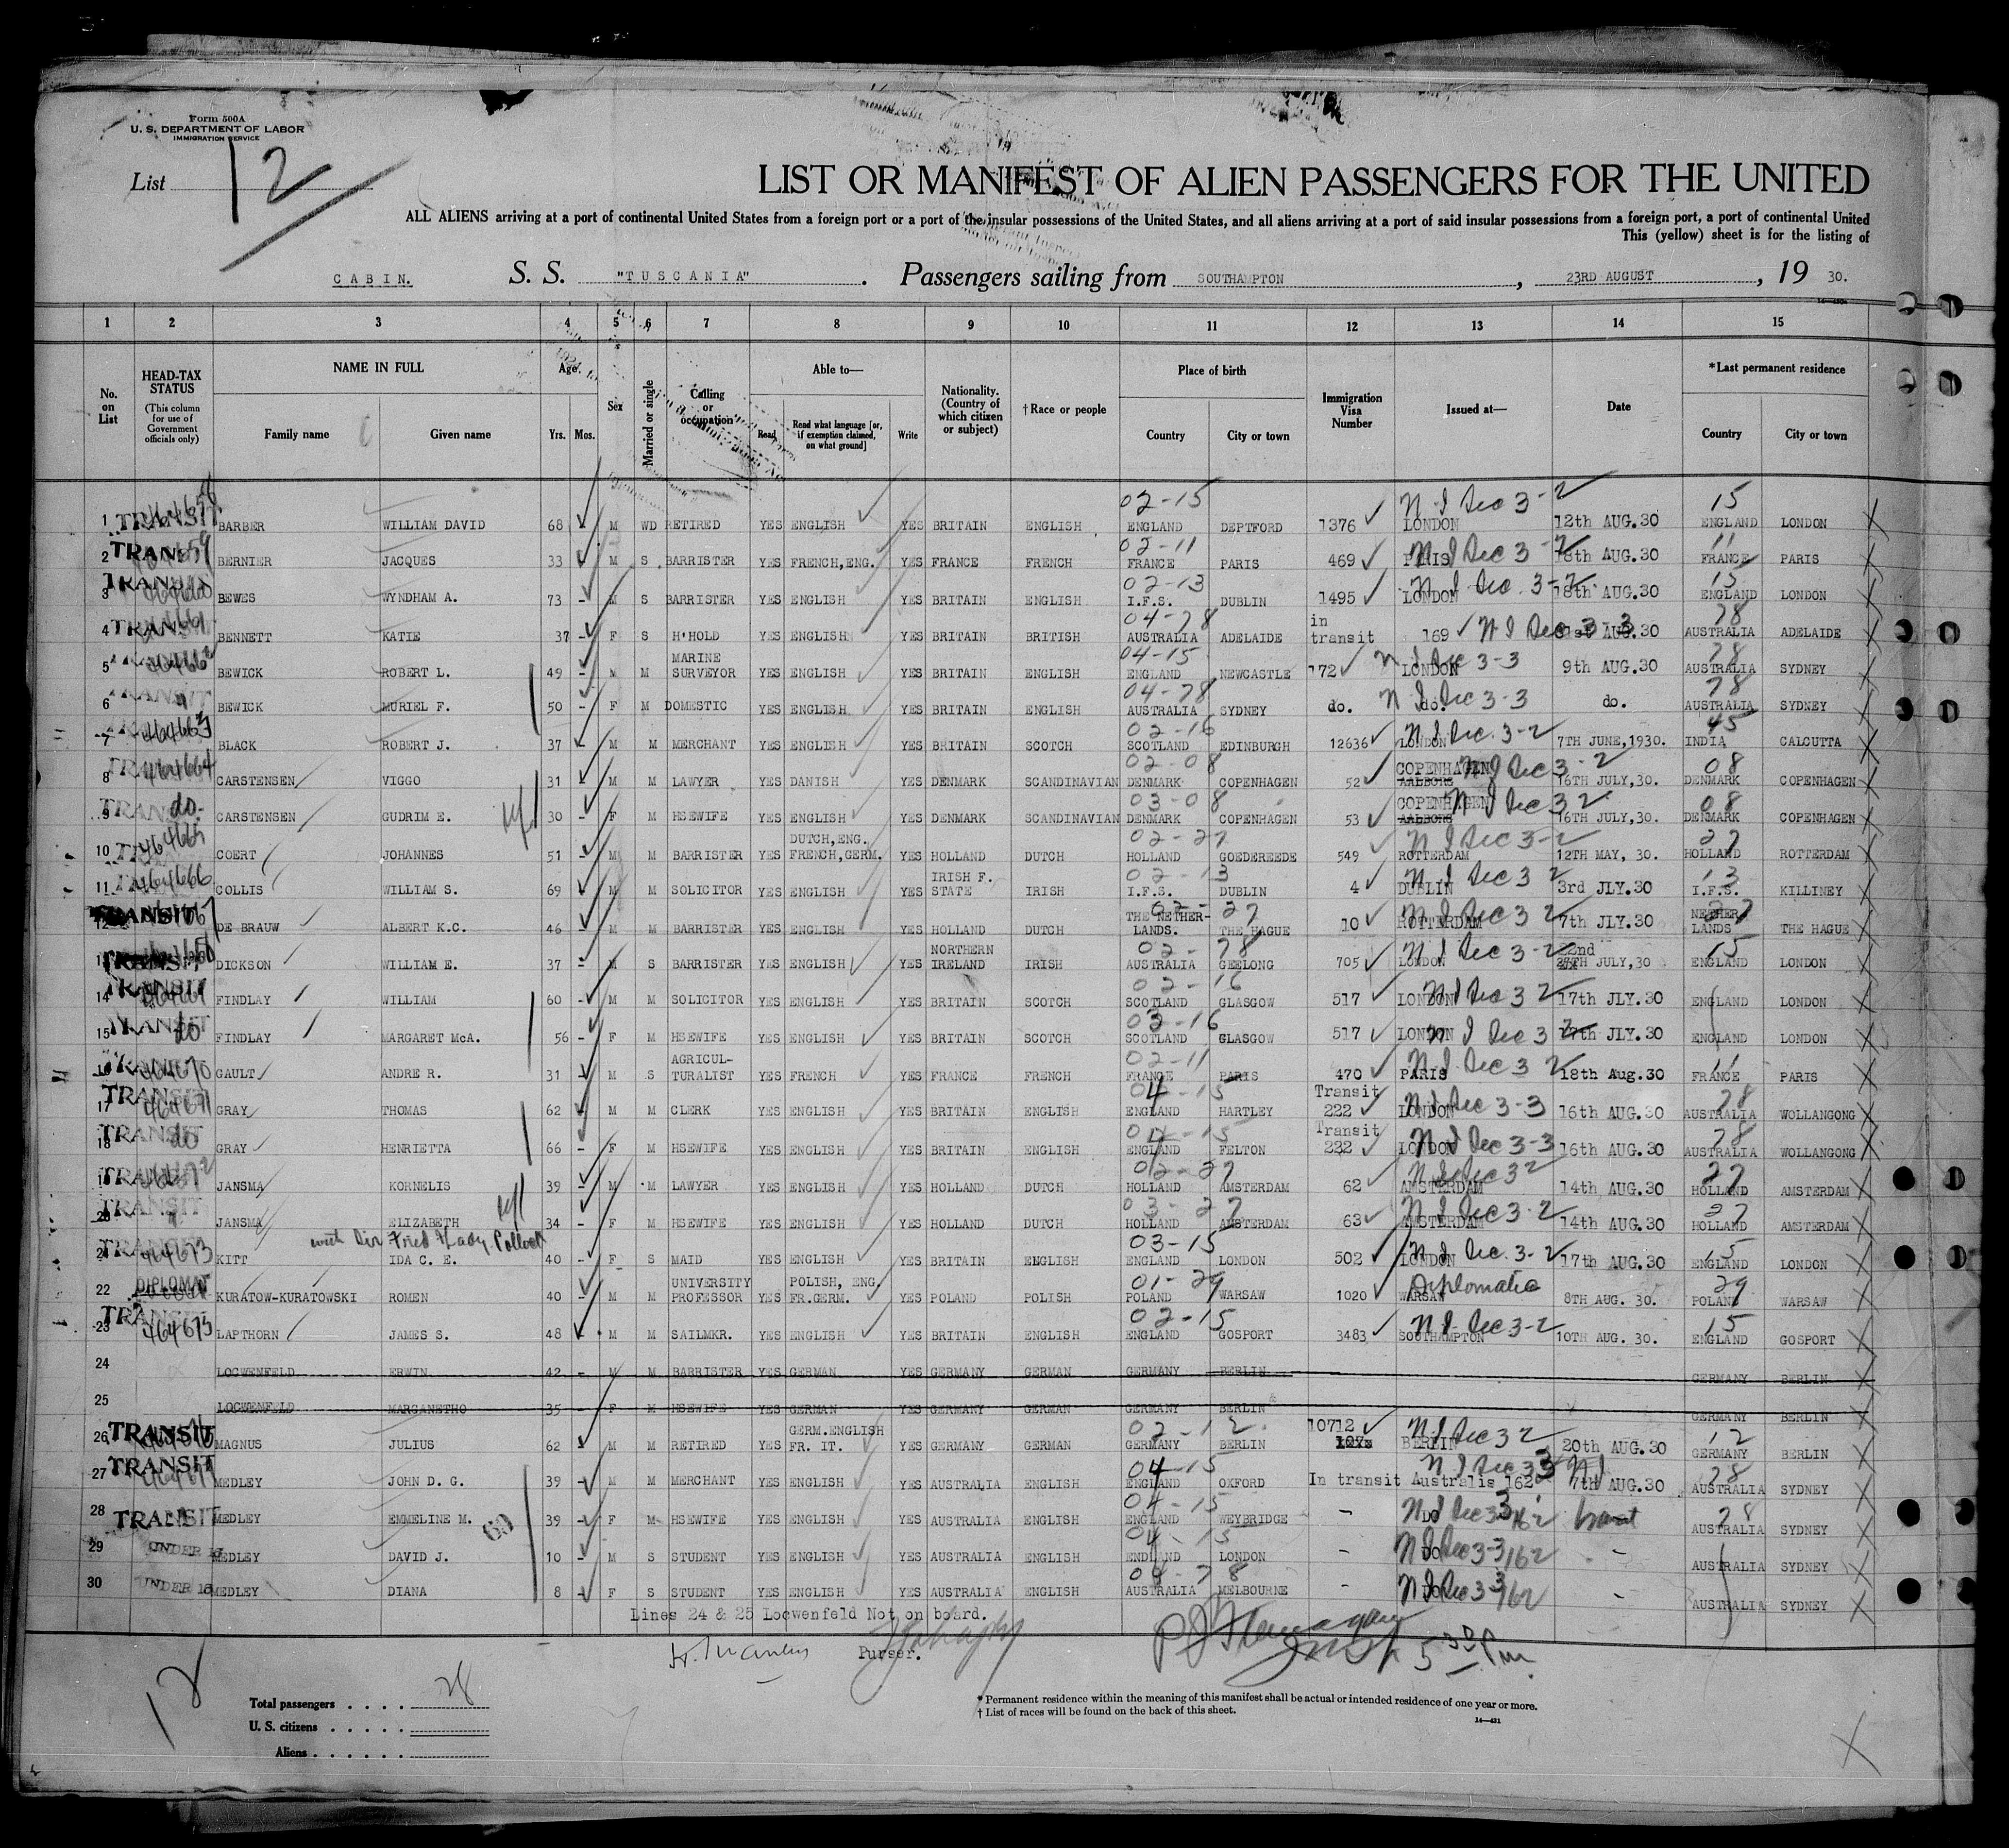 Form 500A
U. S. DEPARTMENT OF LABOR
IMMIGRATION SERVICE
List 12
LIST OR MANIFEST OF ALIEN PASSENGERS FOR THE UNITED
ALL ALIENS arriving at a port of continental United States from a foreign port or a port of the insular possessions of the United States, and all aliens arriving at a port of said insular possessions from a foreign port, a port of continental United
This (yellow) sheet is for the listing of
CABIN. S. S. "TUSCANIA". Passengers sailing from SOUTHAMPTON, 23RD AUGUST, 19 30.
1 2 3 4 5 6 7 8 9 10 11 12 13 14 15
No. on List
HEAD-TAX STATUS (This column for use of Government officials only)
NAME IN FULL Family name Given name
Age Yrs. Mos.
Sex
Married or single
Calling or occupation
Able to— Read Read what language [or, if exemption claimed, on what ground] Write
Nationality. (Country of which citizen or subject)
†Race or people
Place of birth Country City or town
Immigration Visa Number
Issued at—
Date
*Last permanent residence Country City or town
1 TRANSIT BARBER WILLIAM DAVID 68 M WD RETIRED YES ENGLISH YES BRITAIN ENGLISH 02-15 ENGLAND DEPTFORD 1376 N I Sec 3-2 LONDON 12th AUG.30 15 ENGLAND LONDON
2 TRANSIT BERNIER JACQUES 33 M S BARRISTER YES FRENCH,ENG. YES FRANCE FRENCH 02-11 FRANCE PARIS 469 N I Sec 3-2 PARIS 18th AUG.30 11 FRANCE PARIS
3 TRANSIT BEWES WYNDHAM A. 73 M S BARRISTER YES ENGLISH YES BRITAIN ENGLISH 02-13 I.F.S. DUBLIN 1495 N I Sec. 3-2 LONDON 18th AUG.30 15 ENGLAND LONDON
4 TRANSIT BENNETT KATIE 37 - F S H'HOLD YES ENGLISH YES BRITAIN BRITISH 04-78 AUSTRALIA ADELAIDE in transit 169 N I Sec 3-3 AUG.30 78 AUSTRALIA ADELAIDE
5 BEWICK ROBERT L. 49 - M M MARINE SURVEYOR YES ENGLISH YES BRITAIN ENGLISH 04-15 ENGLAND NEWCASTLE 172 N I Sec 3-3 LONDON 9th AUG.30 78 AUSTRALIA SYDNEY
6 TRANSIT BEWICK MURIEL F. 50 - F M DOMESTIC YES ENGLISH YES BRITAIN ENGLISH 04-78 AUSTRALIA SYDNEY do. N I Sec 3-3 do. do. 78 AUSTRALIA SYDNEY
7 464663 BLACK ROBERT J. 37 - M M MERCHANT YES ENGLISH YES BRITAIN SCOTCH 02-16 SCOTLAND EDINBURGH 12636 N I Sec. 3-2 LONDON 7TH JUNE,1930. 45 INDIA CALCUTTA
8 464664 CARSTENSEN VIGGO 31 - M M LAWYER YES DANISH YES DENMARK SCANDINAVIAN 02-08 DENMARK COPENHAGEN 52 COPENHAGEN AALBORG N I Sec 3-2 16TH JULY,30. 08 DENMARK COPENHAGEN
9 TRANSIT do. CARSTENSEN GUDRIM E. 30 - F M HSEWIFE YES ENGLISH YES DENMARK SCANDINAVIAN 03-08 DENMARK COPENHAGEN 53 COPENHAGEN AALBORG N I Sec 3 2 16TH JULY,30. 08 DENMARK COPENHAGEN
10 464665 COERT JOHANNES 51 - M M BARRISTER YES DUTCH,ENG. FRENCH,GERM. YES HOLLAND DUTCH 02-27 HOLLAND GOEDEREEDE 549 N I Sec 3-2 ROTTERDAM 12TH MAY, 30. 27 HOLLAND ROTTERDAM
11 464666 COLLIS WILLIAM S. 69 - M M SOLICITOR YES ENGLISH YES IRISH F. STATE IRISH 02-13 I.F.S. DUBLIN 4 N I Sec 3 2 DUBLIN 3rd JLY.30 13 I.F.S. KILLINEY
12 TRANSIT DE BRAUW ALBERT K.C. 46 - M M BARRISTER YES ENGLISH YES HOLLAND DUTCH 02-27 THE NETHER-LANDS. THE HAGUE 10 N I Sec 3 2 ROTTERDAM 7th JLY.30 27 NETHER LANDS THE HAGUE
13 TRANSIT DICKSON WILLIAM E. 37 - M S BARRISTER YES ENGLISH YES NORTHERN IRELAND IRISH 02-78 AUSTRALIA GEELONG 705 N I Sec 3-2 LONDON 22nd JULY,30 15 ENGLAND LONDON
14 TRANSIT FINDLAY WILLIAM 60 - M M SOLICITOR YES ENGLISH YES BRITAIN SCOTCH 02-16 SCOTLAND GLASGOW 517 N I Sec 3 2 LONDON 17th JLY.30 ENGLAND LONDON
15 TRANSIT do FINDLAY MARGARET McA. 56 - F M HSEWIFE YES ENGLISH YES BRITAIN SCOTCH 03-16 SCOTLAND GLASGOW 517 LONDON N I Sec 3 2 17th JLY.30 ENGLAND LONDON
16 464670 GAULT ANDRE R. 31 - M S AGRICUL-TURALIST YES FRENCH YES FRANCE FRENCH 02-11 FRANCE PARIS 470 N I Sec 3 2 PARIS 18th Aug.30 11 FRANCE PARIS
17 TRANSIT 464671 GRAY THOMAS 62 - M M CLERK YES ENGLISH YES BRITAIN ENGLISH 04-15 ENGLAND HARTLEY Transit 222 N I Sec 3-3 LONDON 16th AUG.30 78 AUSTRALIA WOLLANGONG
18 TRANSIT do GRAY HENRIETTA 66 - F M HSEWIFE YES ENGLISH YES BRITAIN ENGLISH 04-15 ENGLAND FELTON Transit 222 N I Sec 3-3 LONDON 16th AUG.30 78 AUSTRALIA WOLLANGONG
19 TRANSIT JANSMA KORNELIS 39 - M M LAWYER YES ENGLISH YES HOLLAND DUTCH 02-27 HOLLAND AMSTERDAM 62 N I Sec 3 2 AMSTERDAM 14th AUG.30 27 HOLLAND AMSTERDAM
20 TRANSIT JANSMA ELIZABETH 34 - F M HSEWIFE YES ENGLISH YES HOLLAND DUTCH 03-27 HOLLAND AMSTERDAM 63 N I Sec 3-2 AMSTERDAM 14th AUG.30 27 HOLLAND AMSTERDAM
with Sir Fred & Lady Pollock
21 464673 KITT IDA C. E. 40 - F S MAID YES ENGLISH YES BRITAIN ENGLISH 03-15 ENGLAND LONDON 502 N I Sec. 3-2 LONDON 17th AUG.30 15 ENGLAND LONDON
22 DIPLOMAT KURATOW-KURATOWSKI ROMEN 40 - M M UNIVERSITY PROFESSOR YES POLISH, ENG. FR.GERM. YES POLAND POLISH 01-29 POLAND WARSAW 1020 Diplomatic WARSAW 8TH AUG. 30. 29 POLAND WARSAW
23 TRANSIT 464675 LAPTHORN JAMES S. 48 - M M SAILMKR. YES ENGLISH YES BRITAIN ENGLISH 02-15 ENGLAND GOSPORT 3483 N I Sec 3-2 SOUTHAMPTON 10TH AUG. 30. 15 ENGLAND GOSPORT
24 LOCWENFELD ERWIN 42 - M M BARRISTER YES GERMAN YES GERMANY GERMAN GERMANY BERLIN GERMANY BERLIN
25 LOCWENFELD MARGANETHO 35 - F M HSEWIFE YES GERMAN YES GERMANY GERMAN GERMANY BERLIN GERMANY BERLIN
26 TRANSIT MAGNUS JULIUS 62 - M M RETIRED YES GERM.ENGLISH FR. IT. YES GERMANY GERMAN 02-12 GERMANY BERLIN 10712 N I Sec 3 2 BERLIN 20th AUG.30 12 GERMANY BERLIN
27 TRANSIT MEDLEY JOHN D. G. 39 - M M MERCHANT YES ENGLISH YES AUSTRALIA ENGLISH 04-15 ENGLAND OXFORD In transit Australis 162 N I Sec 3 3 7th AUG.30 78 AUSTRALIA SYDNEY
28 TRANSIT MEDLEY EMMELINE M. 39 - F M HSEWIFE YES ENGLISH YES AUSTRALIA ENGLISH 04-15 ENGLAND WEYBRIDGE - DO N I Sec 3-3 162 78 AUSTRALIA SYDNEY
29 UNDER 16 MEDLEY DAVID J. 10 - M S STUDENT YES ENGLISH YES AUSTRALIA ENGLISH 04-15 ENGLAND LONDON - DO N I Sec 3-3 162 - AUSTRALIA SYDNEY
30 UNDER 16 MEDLEY DIANA 8 - F S STUDENT YES ENGLISH YES AUSTRALIA ENGLISH 04-78 AUSTRALIA MELBOURNE - DO N I Sec 3-3 162 AUSTRALIA SYDNEY
Lines 24 & 25 Locwenfeld Not on board.
Purser.
5 30 Pm
12
Total passengers . . . . 28
U. S. citizens . . . . .
Aliens . . . . . .
* Permanent residence within the meaning of this manifest shall be actual or intended residence of one year or more.
† List of races will be found on the back of this sheet.
14—421